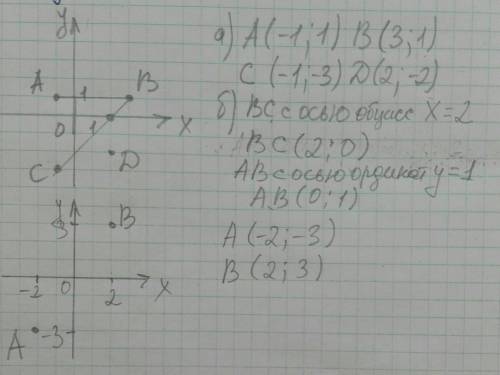 y
A 1 B
0 1 X
C D
y
3 B
-2 0 2 X
A -3
а) A(-1; 1) B(3; 1)
C (-1; -3) D(2; -2)
б) BC с осью абцисс X=2
BC (2; 0)
AB с осью ординат y=1
AB (0; 1)
A (-2; -3)
B (2; 3)